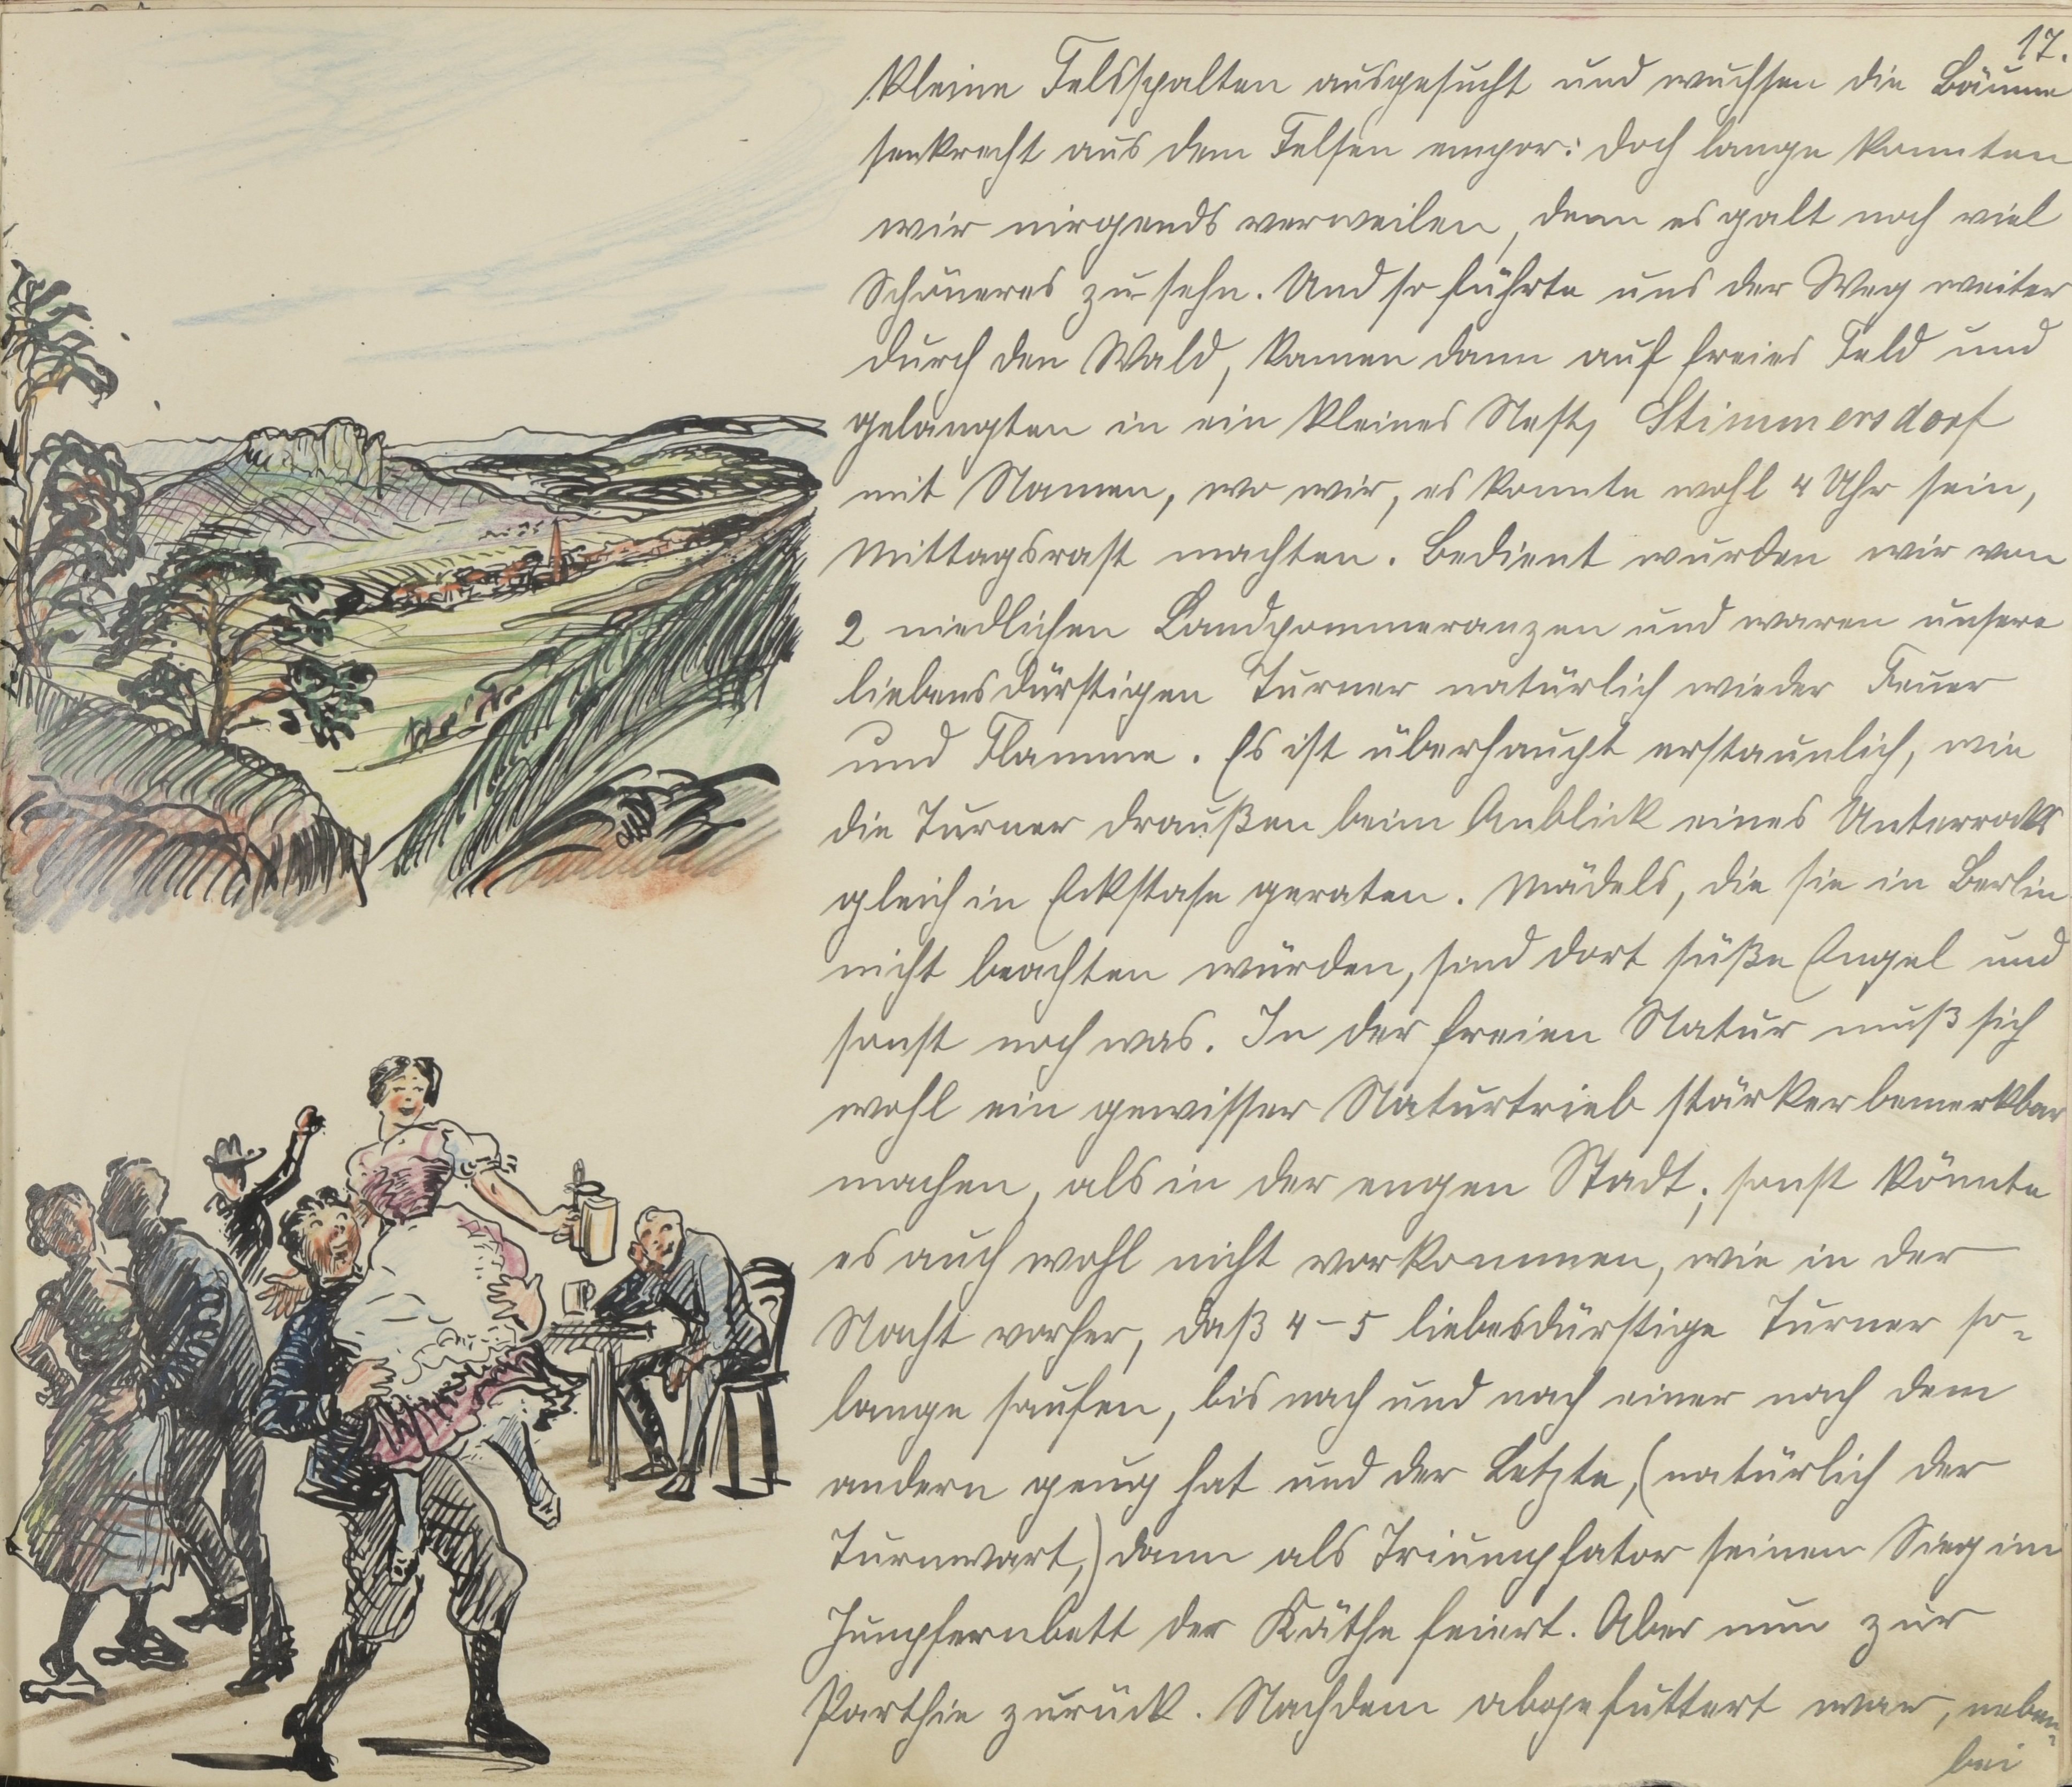 17.
kleine Felsspalten ausgesucht und wuchsen die Bäume
senkrecht aus dem Felsen empor: doch lange konnten
wir nirgends verweilen, denn es galt noch viel
Schöneres zu sehn. Und so führte uns der Weg weiter
durch den Wald, kamen dann auf freies Feld und
gelangten in ein kleines Nest, Stimmersdorf
mit Namen, wo wir, es konnte wohl 4 Uhr sein,
Mittagsrast machten. Bedient wurden wir von
2 niedlichen Landpommeranzen und waren unsere
liebensdürstigen Turner natürlich wieder Feuer
und Flamme. Es ist überhaupt erstaunlich, wie
die Turner draußen beim Anblick eines Unterrocks
gleich in Eckstase geraten. Mädels, die sie in Berlin
nicht beachten würden, sind dort süße Engel und
sonst noch was. In der freien Natur muß sich
wohl ein gewisser Naturtrieb stärker bemerkbar
machen, als in der engen Stadt; sonst könnte
es auch wohl nicht vorkommen, wie in der
Nacht vorher, daß 4-5 liebesdürstige Turner so-
lange saufen, bis nach und nach einer nach dem
andern genug hat und der Letzte, (natürlich der
Turnwart,) dann als Triumphator seinen Sieg im
Jungfernbett der Käthe feiert. Aber nun zur
Parthie zurück. Nachdem abgefuttert war, neben-
bei